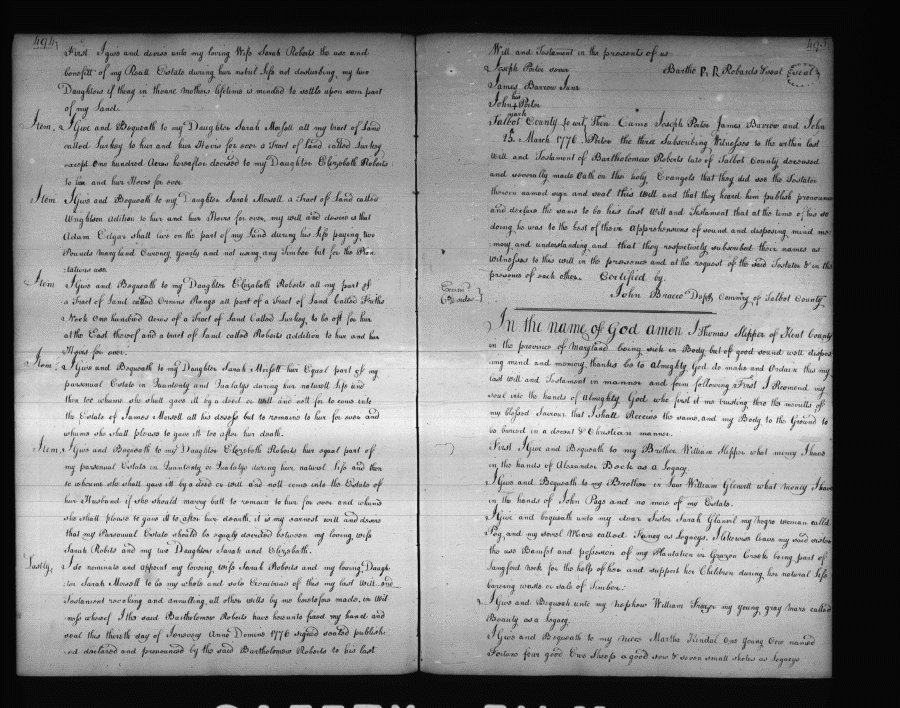 494
First I give and devise unto my loving Wife Sarah Roberts the use and
benefitt of my Reall Estate during her natril Life not desturbing my two
Daughters if they in theare mothers lifetime is minded to settle upon som part
of my Land.
Item, I Give and Bequeath to my Daughter Sarah Morsell all my tract of Land
called Turkey to her and her Heirs for ever a Tract of Land called Turkey
except One hundred Acres hereafter devised to my Daughter Elizabeth Roberts
to her and her Heirs for ever
Item I Give and Bequeath to my Daughter Sarah Morsell a Tract of Land called
Wrightson Adition to her and her Heirs for ever, my will and desire is that
Adam Edgar shall live on the part of my Land during his Life paying two
Pounds Maryland Currency yearly and not using any Timber but for the Plan
tations use.
Item I Give and Bequeath to my Daughter Elizabeth Roberts all my part of
a Tract of Land called Ormins Range all part of a Tract of Land Called
Neck One hundred Acres of a Tract of Land Called Turkey, to be off for her
at the East thereof and a tract of Land called Roberts Addition to her and her
Heirs for ever.
Item, I Give and Bequeath to my Daughter Sarah Morsell her Equal part of my
personal Estate in Quantenty and Qualatys during her naturell Life and
then too whome she shall gave itt by a deed or will and nott for to come into
the Estate of James Morsell all his deseses but to remaine to her for ever and
whome she shall please to gave itt too after her death.
Item, I Give and Bequeath to my Daughter Elizabeth Roberts her equal part of
my personal Estate in Quantoty or Qualatys during her natural Life and then
to whome she shall gave itt by a deed or will and nott come into the Estate of
her Husband if she should marey butt to remain to her for ever and whome
she shall please to gave itt to after her deeath, it is my earnest will and desire
that my Personnal Estate should be equaly devided between my loving wife
Sarah Roberts and my two Daughters Sarah and Elizabeth.
Lastly, I do nominate and appoint my loveing wife Sarah Roberts and my loving Daugh
ter Sarah Morsell to be my whole and sole Executrixes of this my last Will and
Testament revoking and annulling all other wills by me heretofore made, in Wit
ness whereof I the said Bartholomew Roberts have hereunto fixed my hand and
seal this therete day of Janeuary Anno Domini 1776 signed sealed publish
ed declared and pronounced by the said Bartholomew Roberts to his last
495
Will and Testament in the presents of us
Joseph Porter senor Bartho R Robards Seal
James Barrow Junr
his
John + Porter
mark
Talbot County to wit, Then Came Joseph Porter James Barrow and John
March 1776 Porter the three Subscribing Witnesses to the within last
Will and Testament of Bartholomew Roberts late of Talbot County deceased
and severally made Oath on the holy Evangels that they did see the Testator
therein named sign and seal this Will and that they heard him publish pronounce
and declare the same to be his last Will and Testament that at the time of his so
doing he was to the best of their Apprehensions of sound and disposing mind me
mory and understanding and that they respectively subscribed their names as
witnesses to this will in the presence and at the request of the said Testator & in the
presence of each other. Certified by.
John Bracco Depty Commry of Talbot County
In the name of God amen I Thomas Flipper of Kent County
in the province of Maryland being sick in Body but of good sound well dispos
ing mind and memory thanks be to Almighty God do make and Ordain this my
last will and Testament in manner and form following First I Recomend my
soul into the hands of Almighty God who first it me trusting thro the merritts off
my blessed Saviour that I shall Receive the same, and my Body to the Ground to
be buried in a decent & Christian manner.
First I Give and Bequeath to my Brother William Flipper what money I have
in the hands of Alexander Beck as a Legacy.
I Give and Bequeath to my Brother in Law William Glenvill what money I have
in the hands of John Page and no more of my Estate.
I Give and bequeath unto my dear Sister Sarah Glanvil my Negro woman called
Peg, and my sorrel Mare called Fancy as Legacys, I likewise leave my said sister
the use Benefit and possession of my Plantation in Grayon Creeke being part of
Langford Neck for the help of her and support her Children during her natural Life
barring waste or sale of Timber.
I Give and Bequeath unto my nephew William Frazer my young gray mare called
Beauty as a Legacy.
I Give and Bequeath to my neece Martha Kendal One young Cow named
Fortune four good Ewe Sheep a good sow & seven small shotes as Legacys